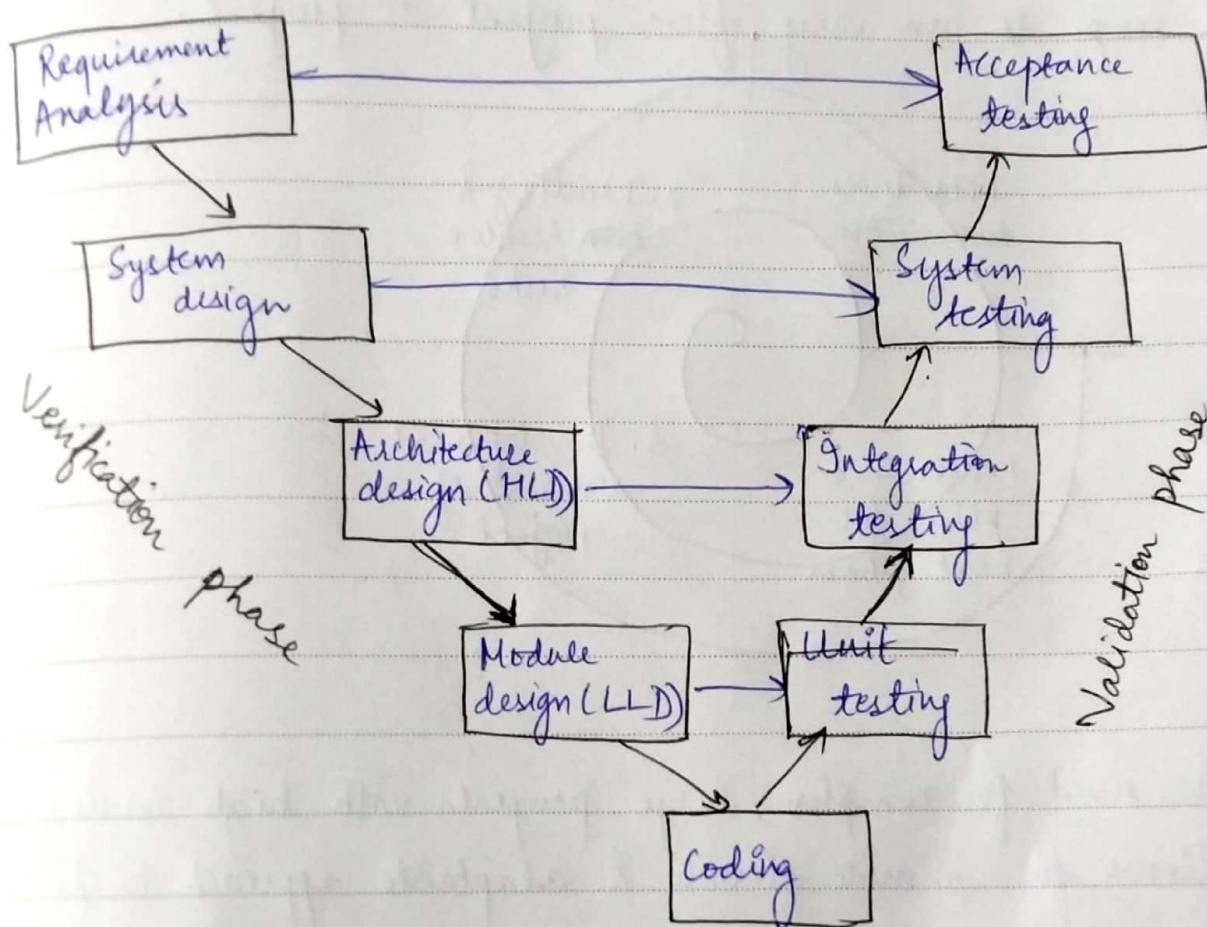 Requirement
Analysis
Acceptance
testing
System
design
System
testing
Verification phase
Architecture
design (HLD)
Integration
testing
Validation phase
Module
design (LLD)
Unit
testing
Coding